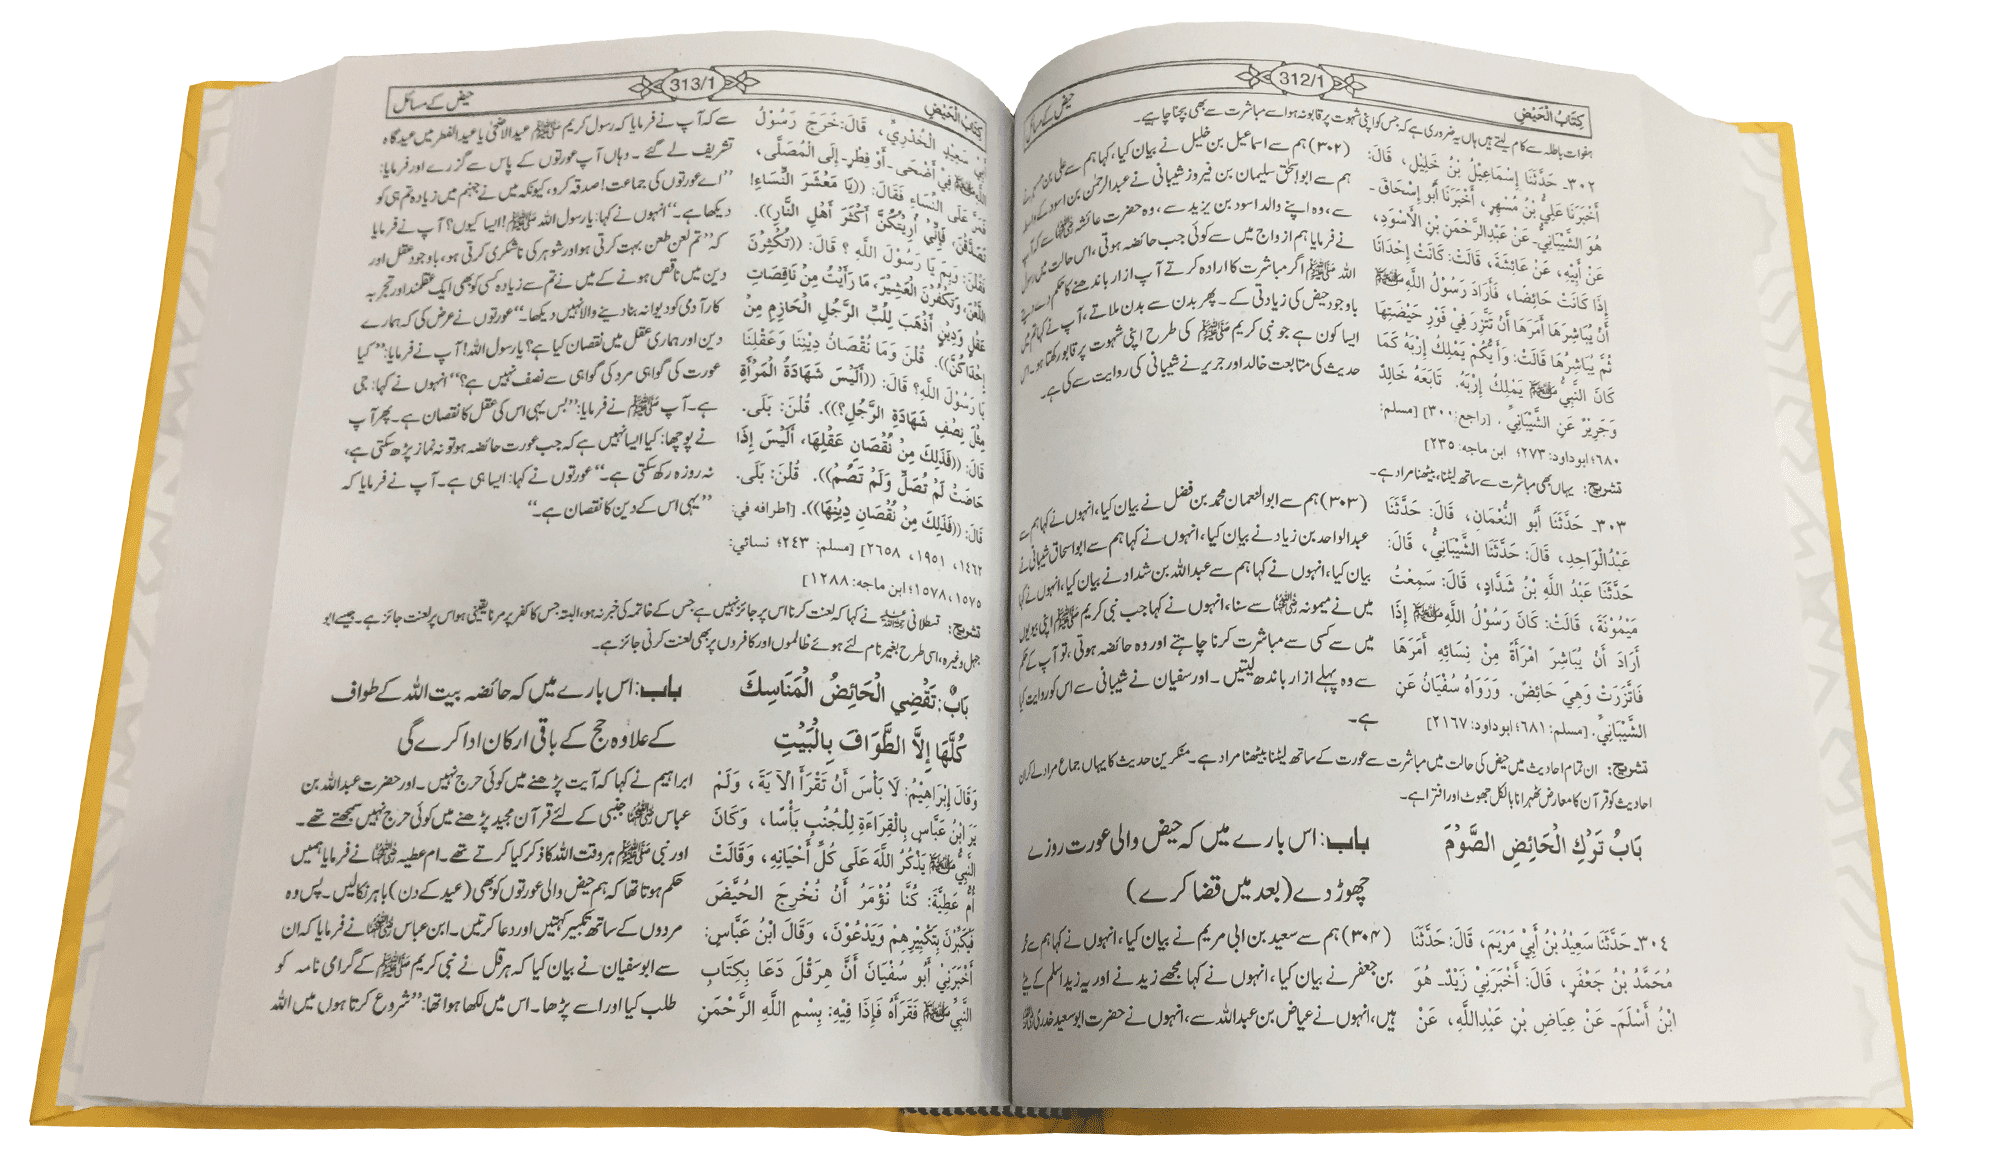 كِتَابُ الْحَيْضِ
312/1
حیض کے مسائل
ہفوات باطلہ سے کام لیتے ہیں ہاں یہ ضروری ہے کہ جس کو اپنی شہوت پر قابو نہ ہو اسے مباشرت سے بھی بچنا چاہیے۔
٣٠٢۔ حَدَّثَنَا إِسْمَاعِيْلُ بْنُ خَلِيْلٍ، قَالَ:
أَخْبَرَنَا عَلِيُّ بْنُ مُسْهِرٍ، أَخْبَرَنَا أَبُو إِسْحَاقَ۔
هُوَ الشَّيْبَانِيُّ۔ عَنْ عَبْدِالرَّحْمَنِ بْنِ الأَسْوَدِ،
عَنْ أَبِيْهِ، عَنْ عَائِشَةَ، قَالَتْ: كَانَتْ إِحْدَانَا
إِذَا كَانَتْ حَائِضًا، فَأَرَادَ رَسُوْلُ اللَّهِ ﷺ
أَنْ يُبَاشِرَهَا أَمَرَهَا أَنْ تَتَّزِرَ فِيْ فَوْرِ حَيْضَتِهَا
ثُمَّ يُبَاشِرُهَا قَالَتْ: وَأَيُّكُمْ يَمْلِكُ إِرْبَهُ كَمَا
كَانَ النَّبِيُّ ﷺ يَمْلِكُ إِرْبَهُ. تَابَعَهُ خَالِدٌ
وَجَرِيْرٌ عَنِ الشَّيْبَانِيِّ. [راجع: ٣٠٠] [مسلم:
٦٨٠؛ ابوداود: ٢٧٣؛ ابن ماجه: ٢٣٥]
(۳۰۲) ہم سے اسماعیل بن خلیل نے بیان کیا، کہا ہم سے علی بن مسہر نے
ہم سے ابواسحٰق سلیمان بن فیروز شیبانی نے عبدالرحمٰن بن اسود کے واسطہ
سے، وہ اپنے والد اسود بن یزید سے، وہ حضرت عائشہ ؓ سے کہ آپ
نے فرمایا ہم ازواج میں سے کوئی جب حائضہ ہوتی، اس حالت میں رسول
اللہ ﷺ اگر مباشرت کا ارادہ کرتے تو آپ ازار باندھنے کا حکم دیتے
باوجود حیض کی زیادتی کے۔ پھر بدن سے بدن ملاتے، آپ نے کہا تم میں
ایسا کون ہے جو نبی کریم ﷺ کی طرح اپنی شہوت پر قابو رکھتا ہو۔ اس
حدیث کی متابعت خالد اور جریر نے شیبانی کی روایت سے کی ہے۔
تشریح: یہاں بھی مباشرت سے ساتھ لیٹنا، بیٹھنا مراد ہے۔
٣٠٣۔ حَدَّثَنَا أَبُو النُّعْمَانِ، قَالَ: حَدَّثَنَا
عَبْدُالْوَاحِدِ، قَالَ: حَدَّثَنَا الشَّيْبَانِيُّ، قَالَ:
حَدَّثَنَا عَبْدُ اللَّهِ بْنُ شَدَّادٍ، قَالَ: سَمِعْتُ
مَيْمُوْنَةَ، قَالَتْ: كَانَ رَسُوْلُ اللَّهِ ﷺ إِذَا
أَرَادَ أَنْ يُبَاشِرَ امْرَأَةً مِنْ نِسَائِهِ أَمَرَهَا
فَاتَّزَرَتْ وَهِيَ حَائِضٌ. وَرَوَاهُ سُفْيَانُ عَنِ
الشَّيْبَانِيِّ. [مسلم: ٦٨١؛ ابوداود: ٢١٦٧]
(۳۰۳) ہم سے ابوالنعمان محمد بن فضل نے بیان کیا، انہوں نے کہا ہم سے
عبدالواحد بن زیاد نے بیان کیا، انہوں نے کہا ہم سے ابواسحاق شیبانی نے
بیان کیا، انہوں نے کہا ہم سے عبداللہ بن شداد نے بیان کیا، انہوں نے کہا
میں نے میمونہ ؓ سے سنا، انہوں نے کہا جب نبی کریم ﷺ اپنی بیویوں
میں سے کسی سے مباشرت کرنا چاہتے اور وہ حائضہ ہوتی، تو آپ کے حکم
سے وہ پہلے ازار باندھ لیتیں۔ اور سفیان نے شیبانی سے اس کو روایت کیا
ہے۔
تشریح: ان تمام احادیث میں حیض کی حالت میں مباشرت سے عورت کے ساتھ لیٹنا بیٹھنا مراد ہے۔ منکرین حدیث کا یہاں جماع مراد لے کر ان
احادیث کو قرآن کا معارض ٹھہرانا بالکل جھوٹ اور افترا ہے۔
بَابُ تَرْكِ الْحَائِضِ الصَّوْمَ
باب: اس بارے میں کہ حیض والی عورت روزے
چھوڑ دے (بعد میں قضا کرے)
٣٠٤۔ حَدَّثَنَا سَعِيْدُ بْنُ أَبِيْ مَرْيَمَ، قَالَ: حَدَّثَنَا
مُحَمَّدُ بْنُ جَعْفَرٍ، قَالَ: أَخْبَرَنِيْ زَيْدٌ۔ هُوَ
ابْنُ أَسْلَمَ۔ عَنْ عِيَاضِ بْنِ عَبْدِاللَّهِ، عَنْ
(۳۰۴) ہم سے سعید بن ابی مریم نے بیان کیا، انہوں نے کہا ہم سے
بن جعفر نے بیان کیا، انہوں نے کہا مجھے زید نے اور یہ زید اسلم کے بیٹے
ہیں، انہوں نے عیاض بن عبداللہ سے، انہوں نے حضرت ابوسعید خدری ؓ
كِتَابُ الْحَيْضِ
313/1
حیض کے مسائل
أَبِيْ سَعِيْدٍ الْخُدْرِيِّ، قَالَ: خَرَجَ رَسُوْلُ
اللَّهِ ﷺ فِيْ أَضْحَى۔ أَوْ فِطْرٍ۔ إِلَى الْمُصَلَّى،
فَمَرَّ عَلَى النِّسَاءِ فَقَالَ: ((يَا مَعْشَرَ النِّسَاءِ!
تَصَدَّقْنَ، فَإِنِّيْ أُرِيْتُكُنَّ أَكْثَرَ أَهْلِ النَّارِ)).
فَقُلْنَ: وَبِمَ يَا رَسُوْلَ اللَّهِ؟ قَالَ: ((تُكْثِرْنَ
اللَّعْنَ، وَتَكْفُرْنَ الْعَشِيْرَ، مَا رَأَيْتُ مِنْ نَاقِصَاتِ
عَقْلٍ وَدِيْنٍ أَذْهَبَ لِلُبِّ الرَّجُلِ الْحَازِمِ مِنْ
إِحْدَاكُنَّ)). قُلْنَ وَمَا نُقْصَانُ دِيْنِنَا وَعَقْلِنَا
يَا رَسُوْلَ اللَّهِ؟ قَالَ: ((أَلَيْسَ شَهَادَةُ الْمَرْأَةِ
مِثْلَ نِصْفِ شَهَادَةِ الرَّجُلِ؟)). قُلْنَ: بَلَى.
قَالَ: ((فَذَلِكَ مِنْ نُقْصَانِ عَقْلِهَا، أَلَيْسَ إِذَا
حَاضَتْ لَمْ تُصَلِّ وَلَمْ تَصُمْ)). قُلْنَ: بَلَى.
قَالَ: ((فَذَلِكَ مِنْ نُقْصَانِ دِيْنِهَا)). [أطرافه في:
١٤٦٢، ١٩٥١، ٢٦٥٨] [مسلم: ٢٤٣؛ نسائي:
١٥٧٥، ١٥٧٨؛ ابن ماجه: ١٢٨٨]
سے کہ آپ نے فرمایا کہ رسول کریم ﷺ عید الاضحیٰ یا عید الفطر میں عیدگاہ
تشریف لے گئے۔ وہاں آپ عورتوں کے پاس سے گزرے اور فرمایا:
”اے عورتوں کی جماعت! صدقہ کرو، کیونکہ میں نے جہنم میں زیادہ تم ہی کو
دیکھا ہے۔“ انہوں نے کہا: یا رسول اللہ ﷺ! ایسا کیوں؟ آپ نے فرمایا
کہ ”تم لعن طعن بہت کرتی ہو اور شوہر کی ناشکری کرتی ہو، باوجود عقل اور
دین میں ناقص ہونے کے میں نے تم سے زیادہ کسی کو بھی ایک عقلمند اور تجربہ
کار آدمی کو دیوانہ بنا دینے والا نہیں دیکھا۔“ عورتوں نے عرض کی کہ ہمارے
دین اور ہماری عقل میں نقصان کیا ہے؟ یا رسول اللہ! آپ نے فرمایا: ”کیا
عورت کی گواہی مرد کی گواہی سے نصف نہیں ہے؟“ انہوں نے کہا: جی
ہے۔ آپ ﷺ نے فرمایا: ”بس یہی اس کی عقل کا نقصان ہے۔ پھر آپ
نے پوچھا: کیا ایسا نہیں ہے کہ جب عورت حائضہ ہو تو نہ نماز پڑھ سکتی ہے،
نہ روزہ رکھ سکتی ہے۔“ عورتوں نے کہا: ایسا ہی ہے۔ آپ نے فرمایا کہ
”یہی اس کے دین کا نقصان ہے۔“
تشریح: قسطلانی نے کہا کہ لعنت کرنا اس پر جائز نہیں ہے جس کے خاتمہ کی خبر نہ ہو، البتہ جس کا کفر پر مرنا یقینی ہو اس پر لعنت جائز ہے۔ جیسے ابو
جہل وغیرہ، اسی طرح بغیر نام لئے ہوئے ظالموں اور کافروں پر بھی لعنت کرنی جائز ہے۔
بَابٌ: تَقْضِي الْحَائِضُ الْمَنَاسِكَ
كُلَّهَا إِلَّا الطَّوَافَ بِالْبَيْتِ
باب: اس بارے میں کہ حائضہ بیت اللہ کے طواف
کے علاوہ حج کے باقی ارکان ادا کرے گی
وَقَالَ إِبْرَاهِيْمُ: لَا بَأْسَ أَنْ تَقْرَأَ الآيَةَ، وَلَمْ
يَرَ ابْنُ عَبَّاسٍ بِالْقِرَاءَةِ لِلْجُنُبِ بَأْسًا، وَكَانَ
النَّبِيُّ ﷺ يَذْكُرُ اللَّهَ عَلَى كُلِّ أَحْيَانِهِ، وَقَالَتْ
أُمُّ عَطِيَّةَ: كُنَّا نُؤْمَرُ أَنْ نُخْرِجَ الْحُيَّضَ
فَيُكَبِّرْنَ بِتَكْبِيْرِهِمْ وَيَدْعُوْنَ، وَقَالَ ابْنُ عَبَّاسٍ:
أَخْبَرَنِيْ أَبُو سُفْيَانَ أَنَّ هِرَقْلَ دَعَا بِكِتَابِ
النَّبِيِّ ﷺ فَقَرَأَهُ فَإِذَا فِيْهِ: بِسْمِ اللَّهِ الرَّحْمَنِ
ابراہیم نے کہا کہ آیت پڑھنے میں کوئی حرج نہیں۔ اور حضرت عبداللہ بن
عباس ؓ جنبی کے لئے قرآن مجید پڑھنے میں کوئی حرج نہیں سمجھتے تھے۔
اور نبی ﷺ ہر وقت اللہ کا ذکر کیا کرتے تھے۔ ام عطیہ ؓ نے فرمایا ہمیں
حکم ہوتا تھا کہ ہم حیض والی عورتوں کو بھی (عید کے دن) باہر نکالیں۔ پس وہ
مردوں کے ساتھ تکبیر کہتیں اور دعا کرتیں۔ ابن عباس ؓ نے فرمایا کہ ان
سے ابوسفیان نے بیان کیا کہ ہرقل نے نبی کریم ﷺ کے گرامی نامہ کو
طلب کیا اور اسے پڑھا۔ اس میں لکھا ہوا تھا: ”شروع کرتا ہوں میں اللہ